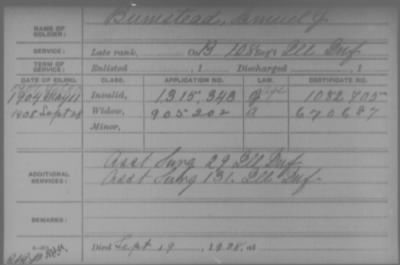 NAME OF SOLDIER: Bumstead, Samuel J.
SERVICE: Late rank, Co B 108 Reg't Ill Inf
TERM OF SERVICE: Enlisted , 1 Discharged , 1
DATE OF FILING. CLASS. APPLICATION NO. LAW. CERTIFICATE NO.
1904 May 11 Invalid, 1315,343 1082,705
1908 Sept 28 Widow, 905202 a 670687
Minor,
ADDITIONAL SERVICES: Asst Surg 29 Ill Inf
Asst Surg 131 Ill Inf
REMARKS:
Died Sept 19, 1908, at